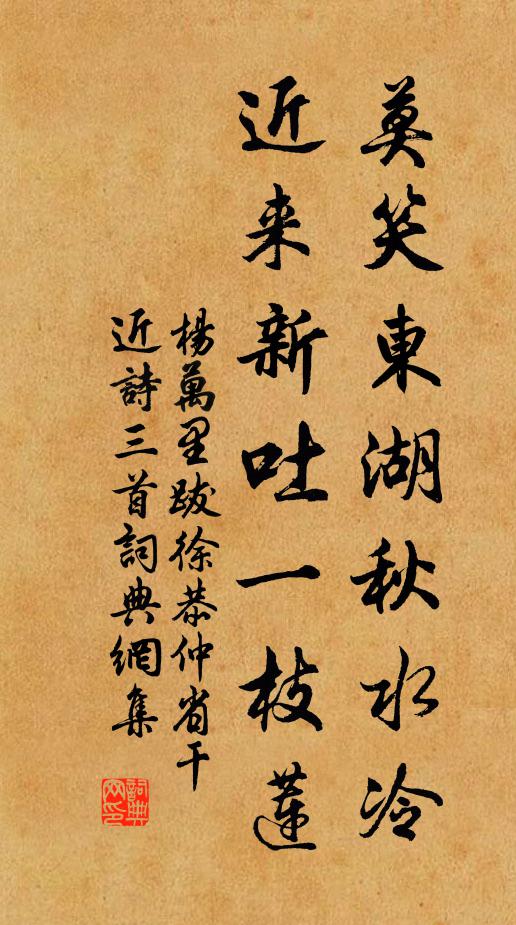 莫笑東湖秋水冷
近来新吐一枝蓮
楊萬里跋徐恭仲省干
近詩三首詞典網集
詞典
网印